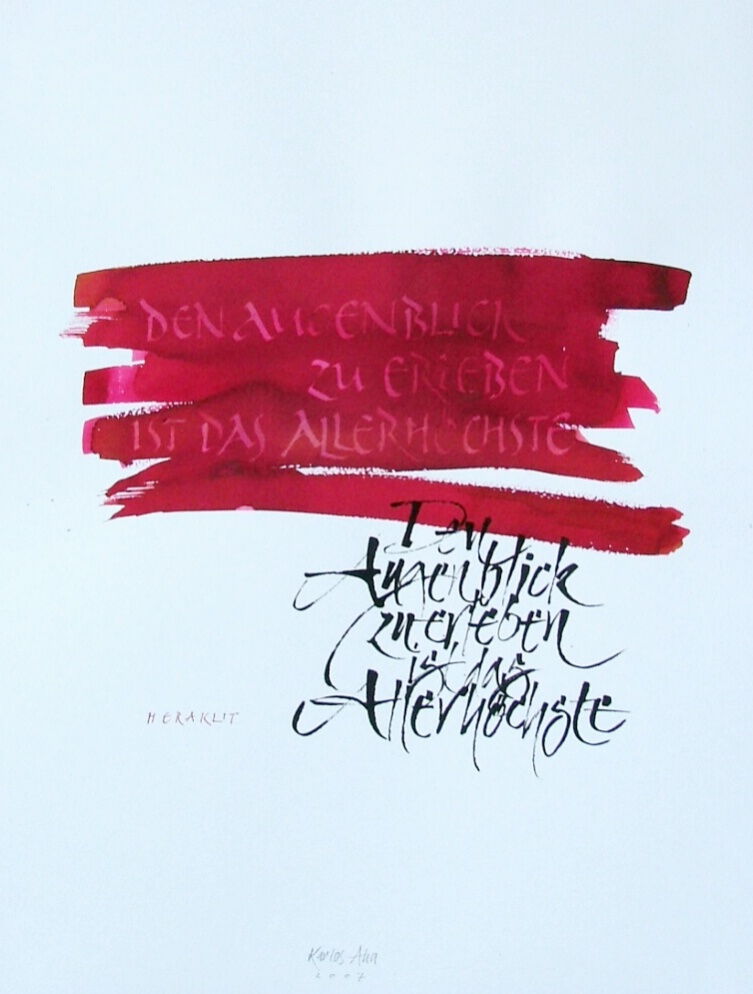 DEN AUGENBLICK
ZU ERLEBEN
IST DAS ALLERHÖCHSTE
Den
Augenblick
zu erleben
ist das
Allerhöchste
HERAKLIT
Karlos Aha
2007